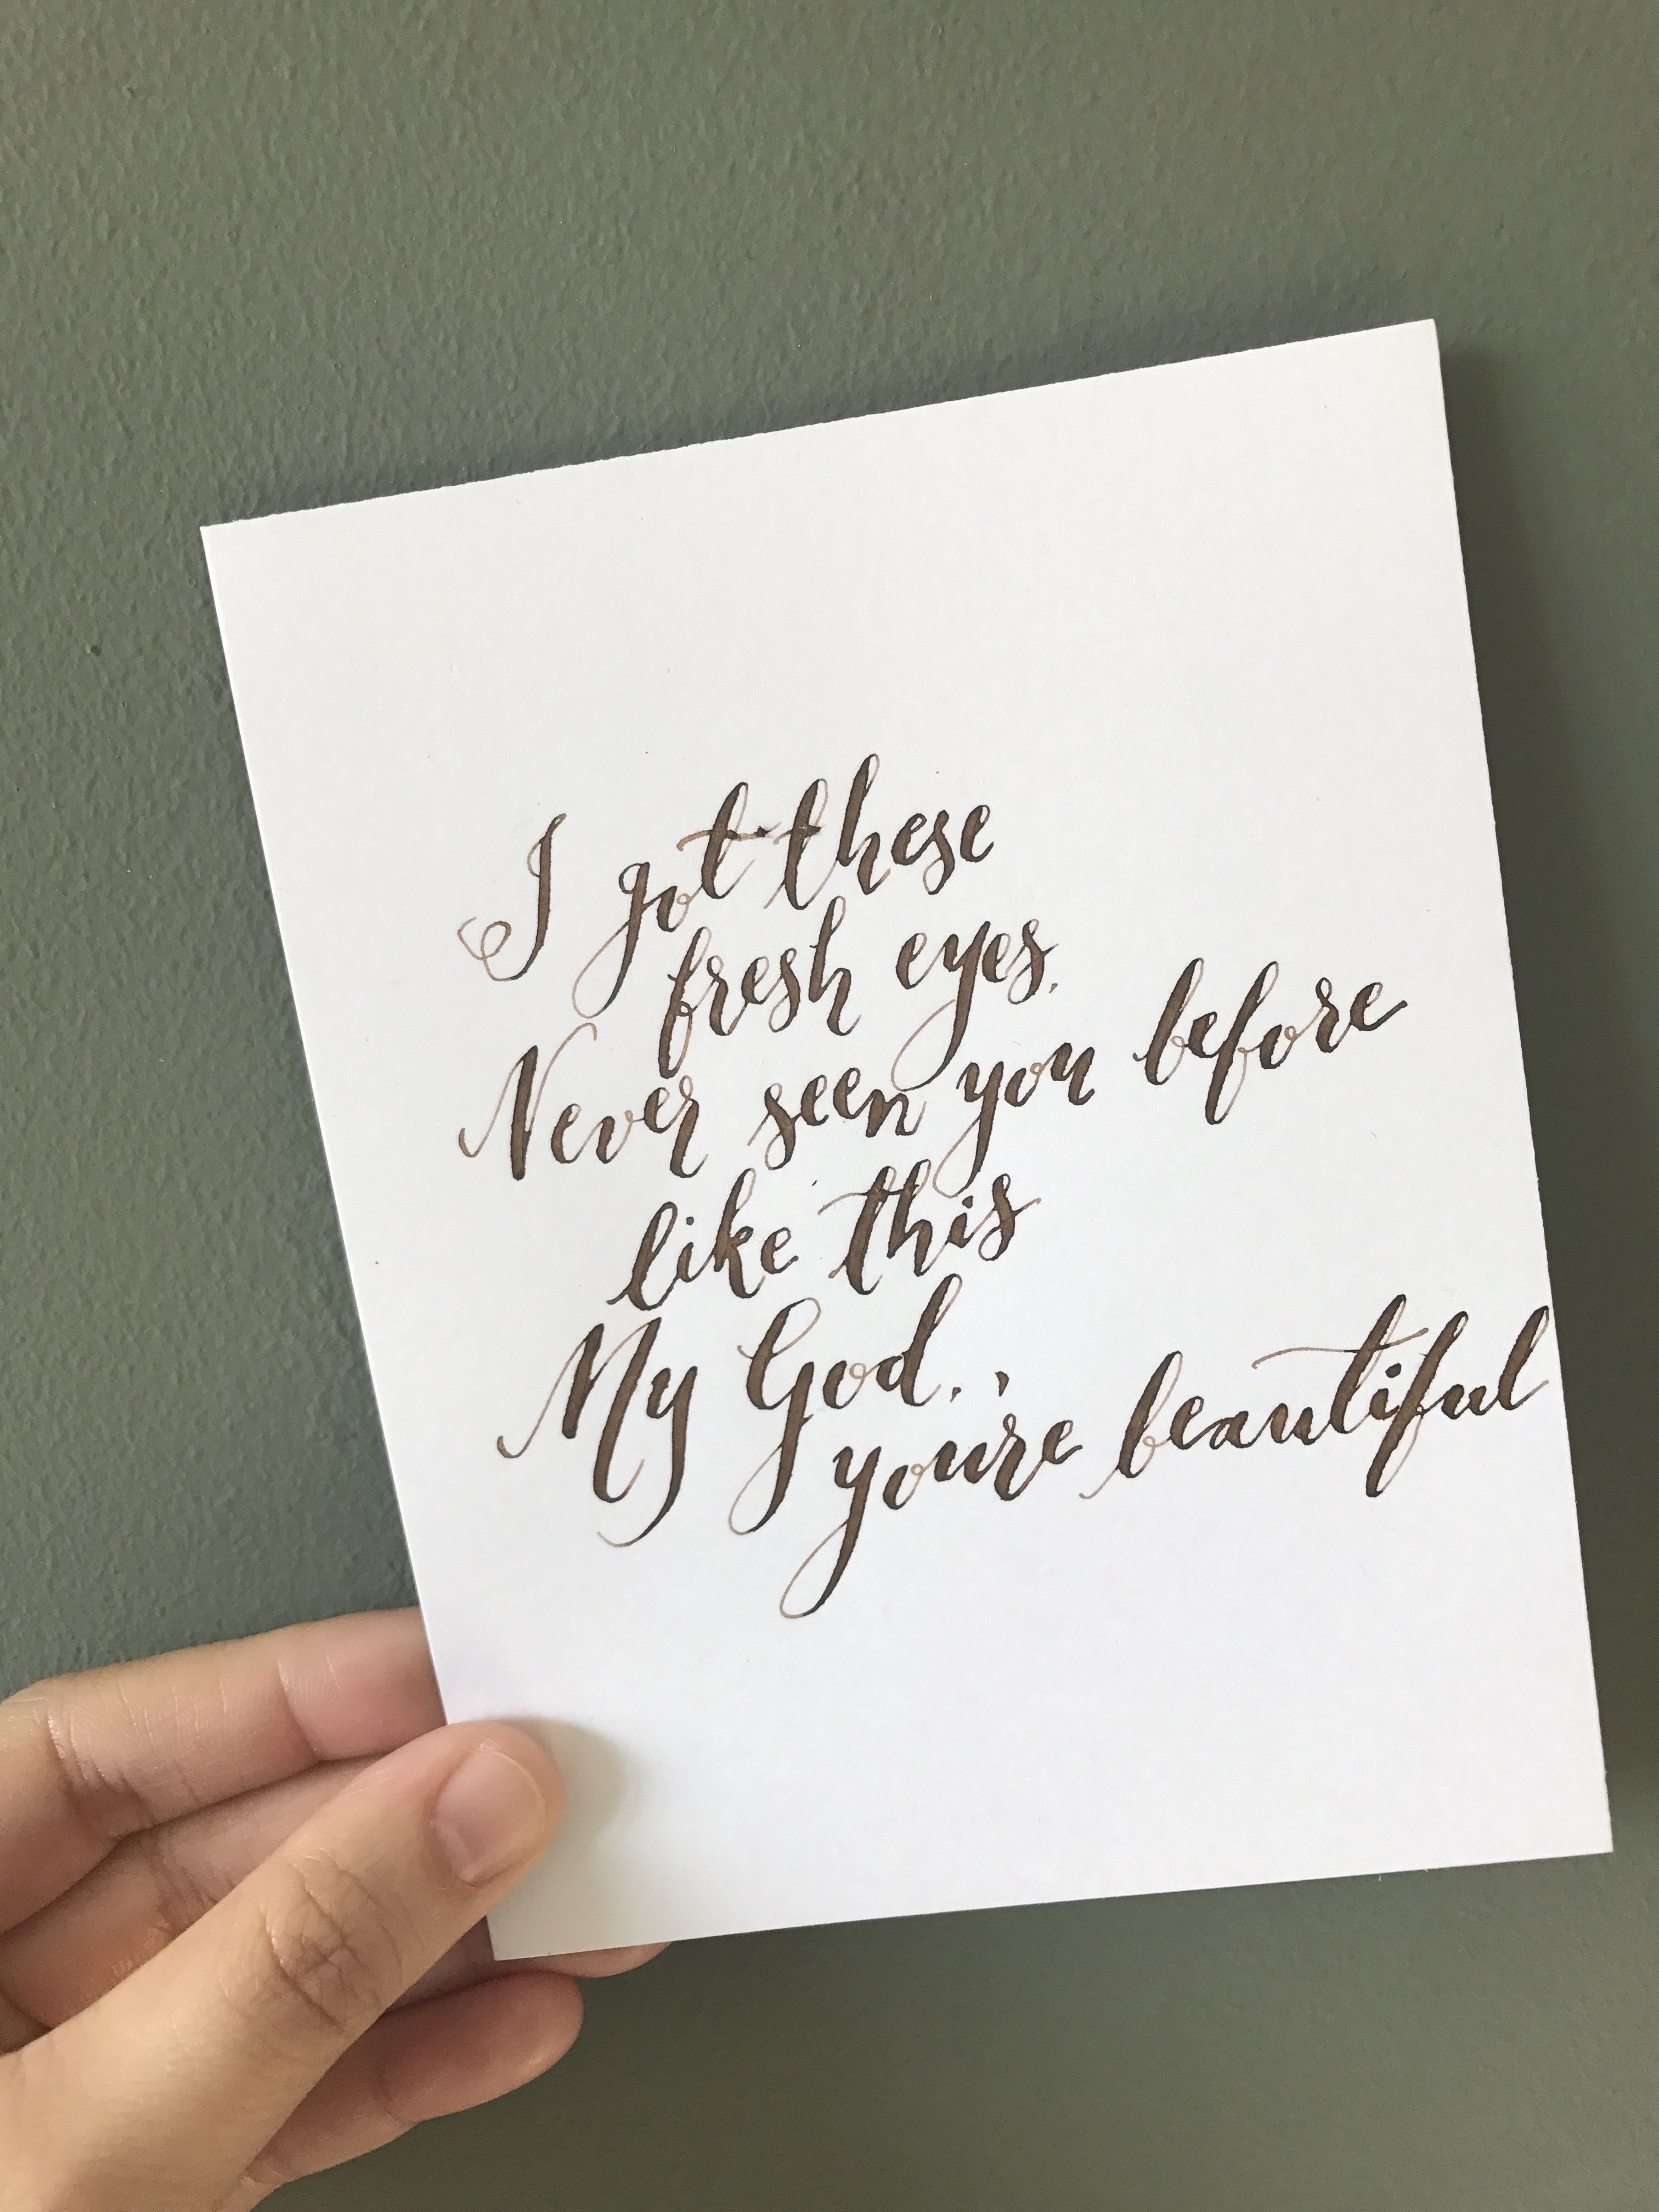 I got these
fresh eyes,
Never seen you before
like this
My God,,
you're beautiful